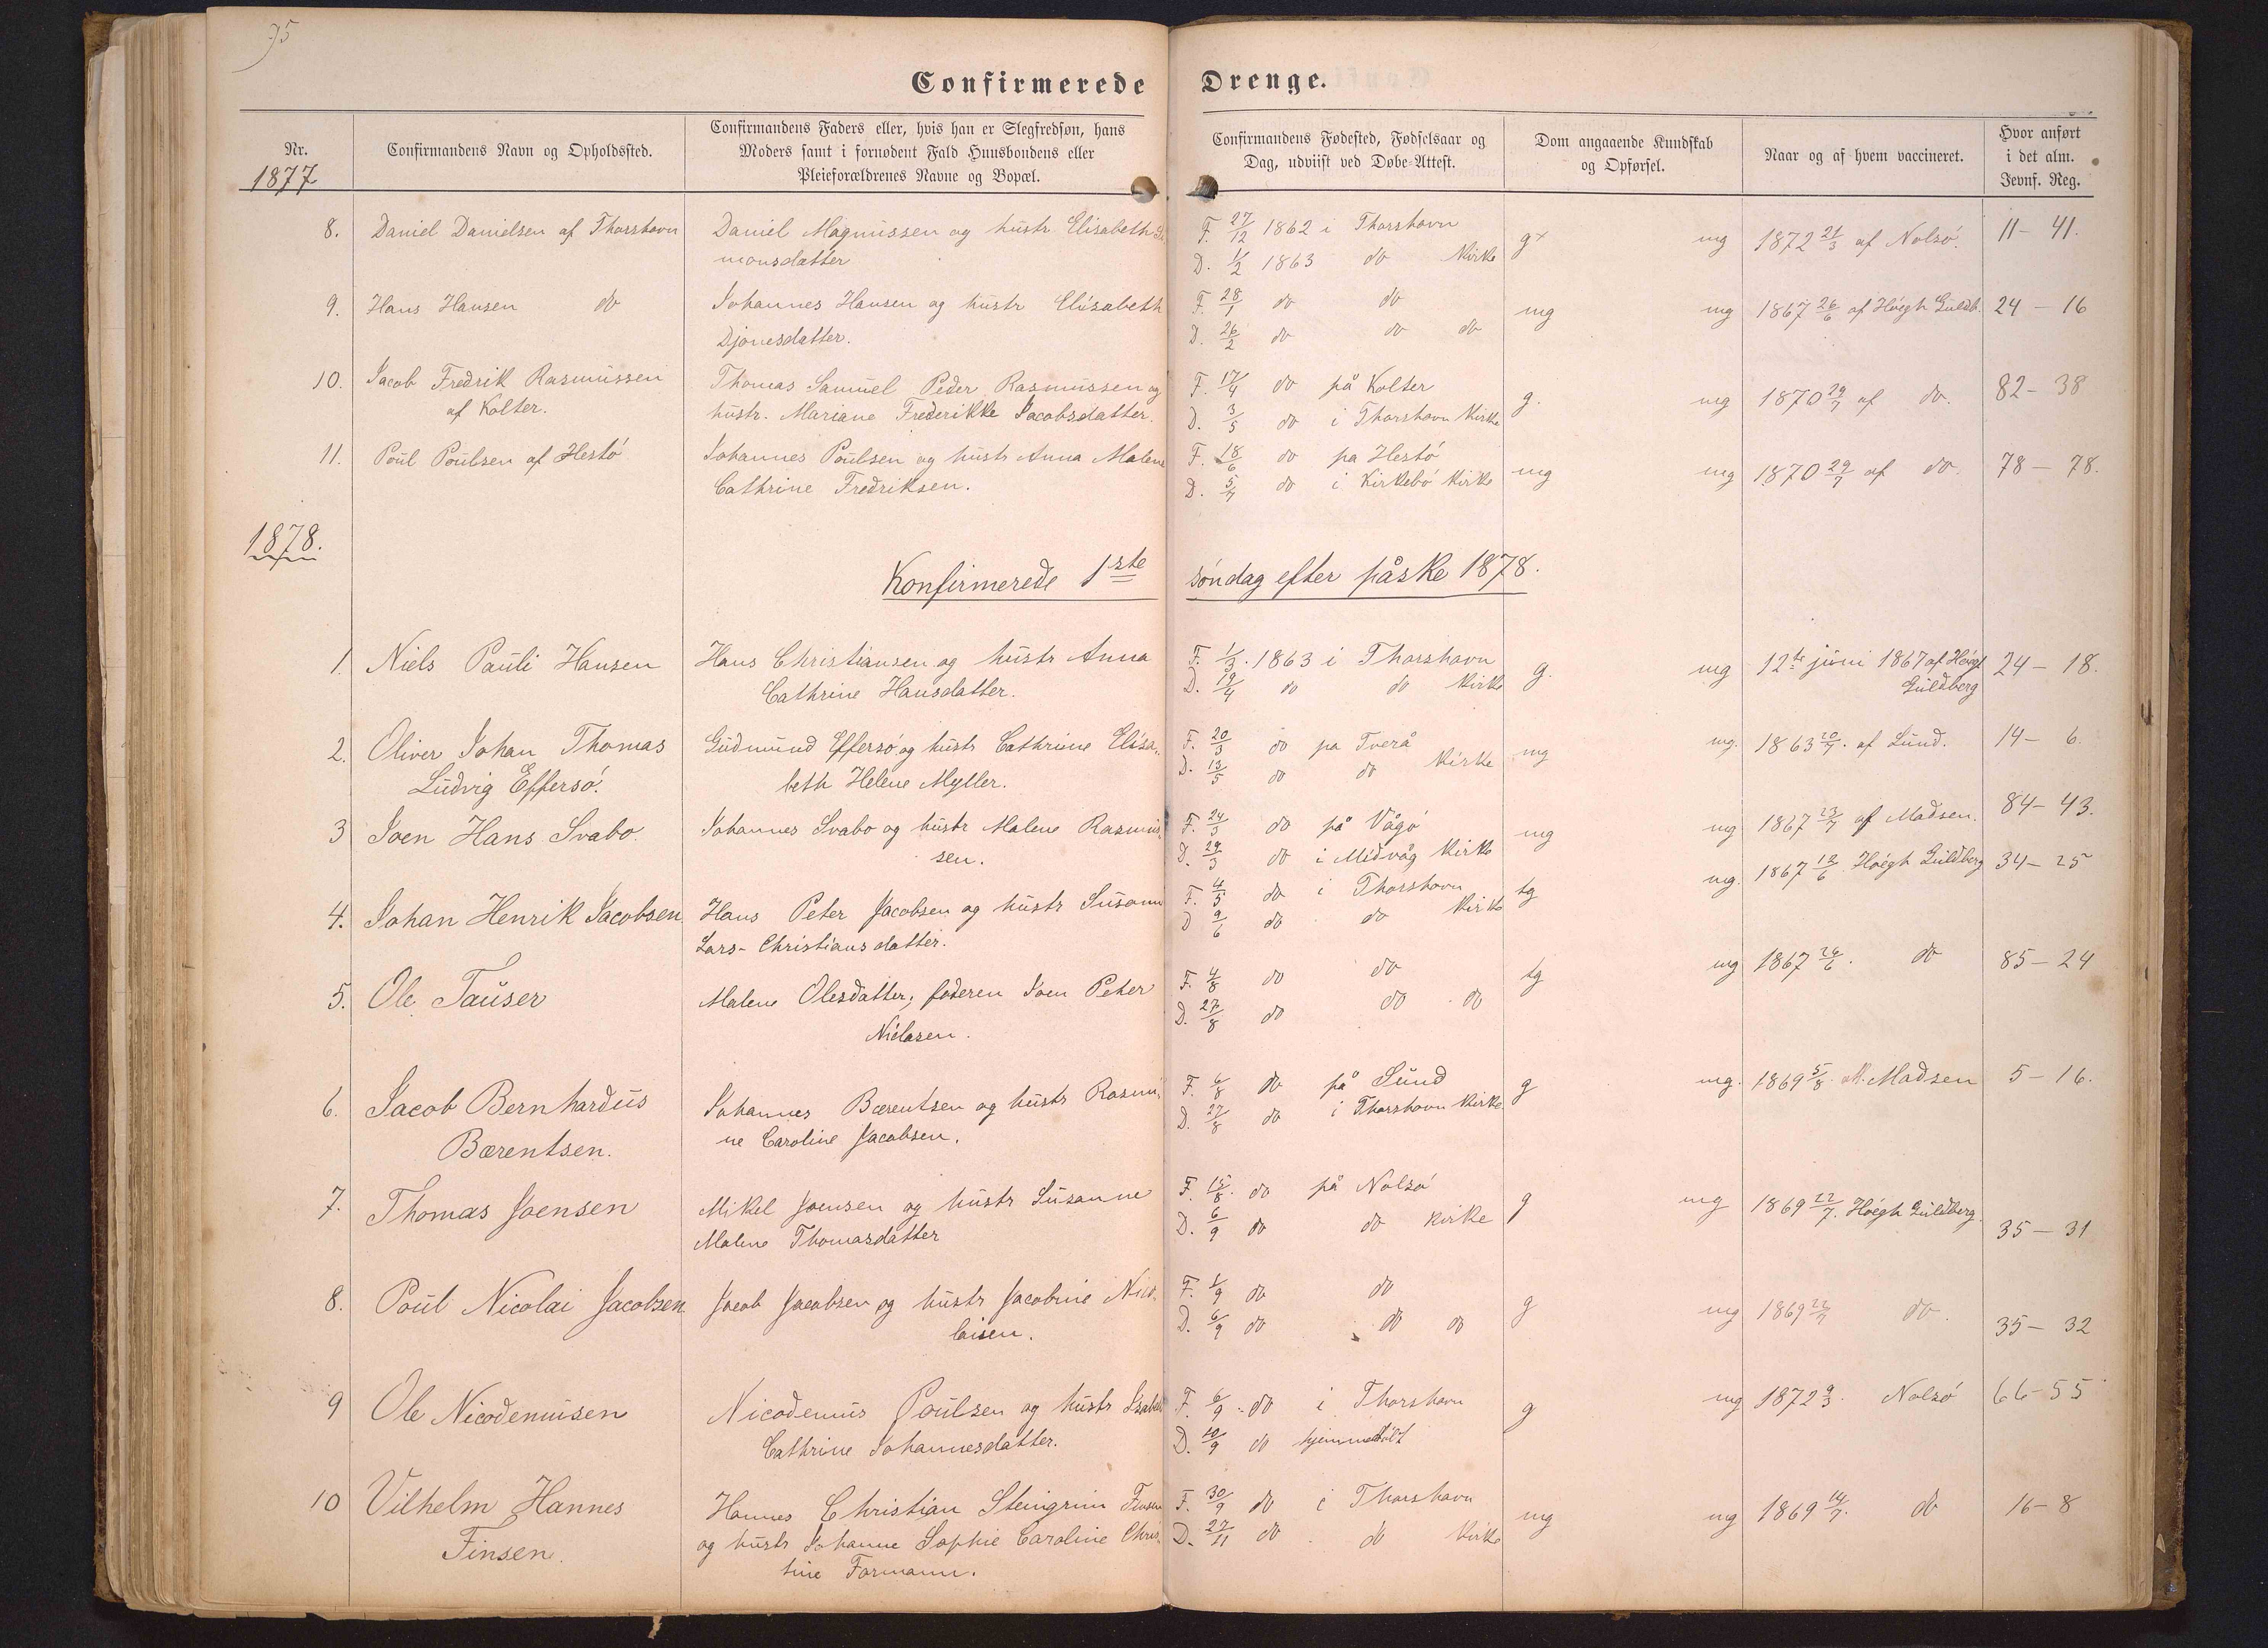 75
Confirmerede Drenge.
Nr.
1877
Confirmandens Navn og Opholdssted.
Confirmandens Faders eller, hvis han er Slegfredsøn, hans
Moders samt i fornødent Fald Huusbondens eller
Pleieforældrenes Navne og Bopæl.
Confirmandens Fødested, Fødselsaar og
Dag, udviist ved Døbe-Attest.
Dom angaaende Kundskab
og Opførsel.
Naar og af hvem vaccineret.
Hvor anført
i det alm.
Jevnf. Reg.
8. Daniel Danielsen af Thorshavn Daniel Magnussen og hustr Elisabeth Si
monsdatter
F. 27/12 1862 i Thorshavn g+ mg 1872 21/3 af Nolsö. 11 - 41.
D. 1/2 1863 do Kirke
9. Hans Hansen do Johannes Hansen og hustr Elisabeth
Djonesdatter.
F. 28/1 do do mg mg 1867 26/6 af Höegh Guldb. 24 - 16
D. 26/2 do do do
10. Jacob Fredrik Rasmussen
af Kolter.
Thomas Samuel Peder Rasmussen og
hustr. Mariane Frederikke Jacobsdatter.
F. 17/4 do på Kolter g. mg 1870 29/7 af do. 82 - 38
D. 3/5 do i Thorshavn Kirke
11. Poul Poulsen af Hestö Johannes Poulsen og hustr Anna Malene
Cathrine Fredriksen.
F. 18/6 do pa Hestö mg mg 1870 29/7 af do. 78 - 78.
D. 5/7 do i Kirkebö Kirke
1878.
Konfirmerede 1ste söndag efter påske 1878.
1. Niels Pauli Hansen Hans Christiansen og hustr Anna
Cathrine Hansdatter.
F. 1/3. 1863 i Thorshavn g. mg 12te juni 1867 af Höegh
Guldberg 24 - 18.
D. 19/4 do do Kirke
2. Oliver Johan Thomas
Ludvig Effersö.
Gudmund Effersö og hustr Cathrine Elisa-
beth Helene Myller.
F. 20/3 do pa Tverå mg mg. 1863 20/7. af Lund. 14 - 6
D. 13/5 do do Kirke
3 Joen Hans Svabo. Johannes Svabo og hustr Malene Rasmus-
sen.
F. 24/3 do på Vågö mg mg 1867 23/7 af Madsen. 84 - 43.
D. 29/3 do i Midvåg Kirke
4. Johan Henrik Jacobsen Hans Peter Jacobsen og hustr Susanne
Lars-Christiansdatter.
F. 4/5 do i Thorshavn tg mg. 1867 12/6 Höegh Guldberg 34 - 25
D 9/6 do do Kirke
5. Ole Tauser Malene Olesdatter; faderen Joen Peter
Nielasen.
F. 4/8 do do tg mg 1867 26/6. do 85 - 24
D. 27/8 do do do
6. Jacob Bernhardus
Bærentsen.
Johannes Bærentsen og hustr Rasmi-
ne Caroline Jacobsen.
F. 6/8 do på Sund g mg. 1869 5/8. Madsen 5 - 16.
D. 27/8 do i Thorshavn Kirke.
7. Thomas Joensen Mikel Joensen og hustr Susanne
Malene Thomasdatter
F. 15/8. do på Nolsö g mg 1869 22/7. Höegh Guldberg. 35 - 31
D. 6/9 do do Kirke
8. Poul Nicolai Jacobsen Jacob Jacobsen og hustr Jacobine Nico-
laisen.
F. 1/9 do do g mg 1869 22/7 do. 35 - 32
D. 6/9 do do do
9 Ole Nicodemusen Nicodemus Poulsen og hustr Isabelle
Cathrine Johannesdatter.
F. 6/9. do i Thorshavn g mg 1872 9/3. Nolsö 66 - 55
D. 10/9 do hjemmedöbt
10 Vilhelm Hannes
Finsen.
Hannes Christian Steingrim Finsen
og hustr Johanne Sophie Caroline Chris-
tine Formann.
F. 30/9 do i Thorshavn mg mg 1869 14/7. do 16 - 8
D. 27/11 do do Kirke